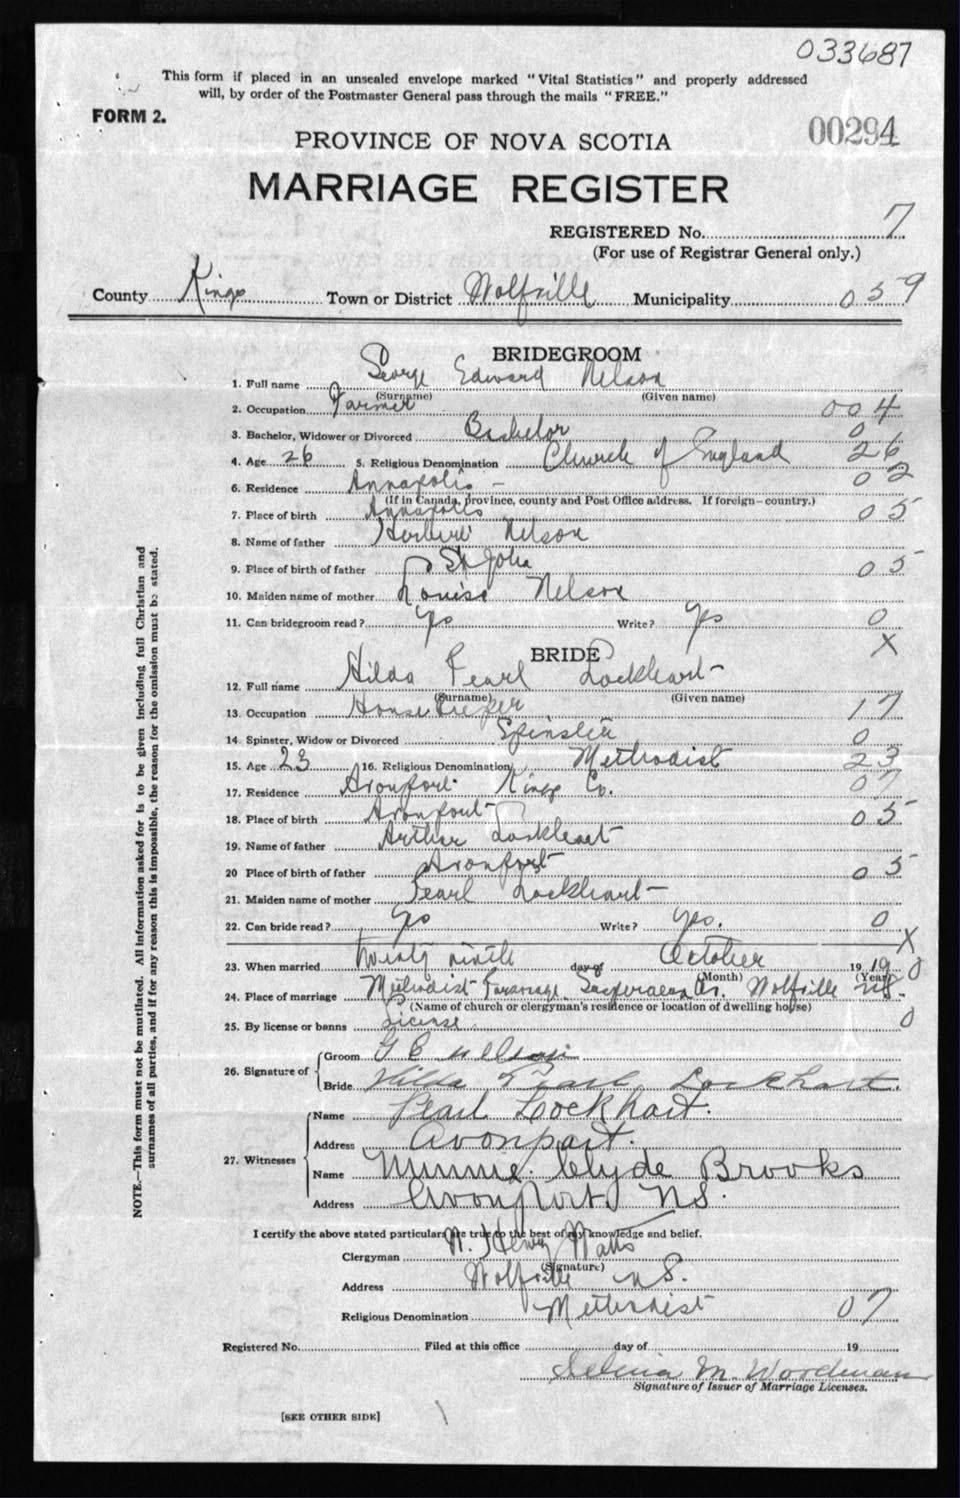 033687
This form if placed in an unsealed envelope marked "Vital Statistics" and properly addressed
will, by order of the Postmaster General pass through the mails "FREE."
FORM 2.
00294
PROVINCE OF NOVA SCOTIA
MARRIAGE REGISTER
REGISTERED No. 7
(For use of Registrar General only.)
County Kings Town or District Wolfville Municipality 059
BRIDEGROOM
1. Full name George Edward Nelson
(Surname) (Given name)
2. Occupation Farmer 004
3. Bachelor, Widower or Divorced Bachelor 0
4. Age 26 5. Religious Denomination Church of England 26
6. Residence Annapolis - 02
(If in Canada, province, county and Post Office address. If foreign—country.)
7. Place of birth Annapolis 05
8. Name of father Herbert Nelson
9. Place of birth of father St John 05
10. Maiden name of mother Louisa Nelson
11. Can bridegroom read? Yes Write? Yes 0
X
BRIDE
12. Full name Hilda Pearl Lockhart
(Surname) (Given name)
13. Occupation House Keeper 17
14. Spinster, Widow or Divorced Spinster 0
15. Age 23 16. Religious Denomination Methodist 23
17. Residence Avonport Kings Co. 07
18. Place of birth Avonport 05
19. Name of father Arthur Lockhart
20 Place of birth of father Avonport 05
21. Maiden name of mother Pearl Lockhart
22. Can bride read? Yes Write? Yes. 0
X
23. When married twenty ninth day of October 1919 0
(Month) (Year)
24. Place of marriage Methodist Parsonage Wolfville NS.
(Name of church or clergyman's residence or location of dwelling house)
25. By license or banns License 0
26. Signature of Groom G E Nelson
Bride Hilda Pearl Lockhart.
27. Witnesses Name Pearl Lockhart.
Address Avonport.
Name Minnie Clyde Brooks
Address Avonport NS.
I certify the above stated particulars are true to the best of my knowledge and belief.
Clergyman W. Henry Watts
(Signature)
Address Wolfville NS.
Religious Denomination Methodist 07
Registered No. Filed at this office day of 19
Selina M. Woodman
Signature of Issuer of Marriage Licenses.
[SEE OTHER SIDE]
NOTE.—This form must not be mutilated. All information asked for is to be given including full Christian and
surnames of all parties, and if for any reason this is impossible, the reason for the omission must be stated.